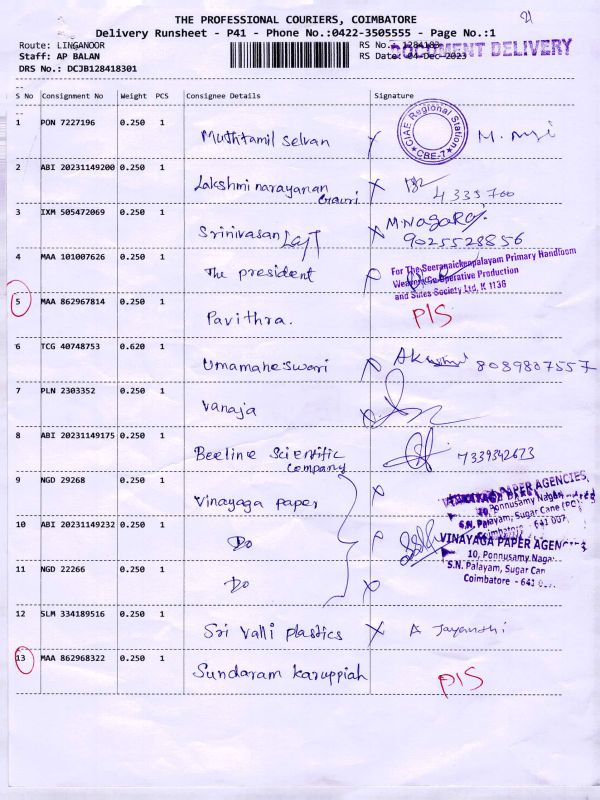 21
THE PROFESSIONAL COURIERS, COIMBATORE
Delivery Runsheet - P41 - Phone No.:0422-3505555 - Page No.:1
Route: LINGANOOR
RS No.: 1284183
DOCUMENT DELIVERY
Staff: AP BALAN
RS Date: 04-Dec-2023
DRS No.: DCJB128418301
S No Consignment No Weight PCS Consignee Details Signature
1 PON 7227196 0.250 1 Muthtamil Selvan
CIAE Regional Station
* CBE-7 *
2 ABI 20231149200 0.250 1 Lakshmi narayanan
Gauri 4335700
3 IXM 505472069 0.250 1 Srinivasan M.Nagaraj
9025528856
4 MAA 101007626 0.250 1 The president
For The Seeranaickenpalayam Primary Handloom
Weavers Co-Operative Production
and Sales Society Ltd, K 1136
5 MAA 862967814 0.250 1 Pavithra. P/S
6 TCG 40748753 0.620 1 Umamaheswari 8089807557
7 PLN 2303352 0.250 1 Vanaja
8 ABI 20231149175 0.250 1 Beeline Scientific 7339342673
Company
9 NGD 29268 0.250 1 Vinayaga paper
VINAYAGA PAPER AGENCIES,
10, Ponnusamy Nagar
S.N. Palayam, Sugar Cane (PO),
Coimbatore - 641 007.
10 ABI 20231149232 0.250 1 Do
VINAYAGA PAPER AGENCIES
10, Ponnusamy Nagar
S.N. Palayam, Sugar Can
Coimbatore - 641
11 NGD 22266 0.250 1 Do
12 SLM 334189516 0.250 1 Sri Valli plastics A Jayanthi
13 MAA 862968322 0.250 1 Sundaram Karuppiah P/S